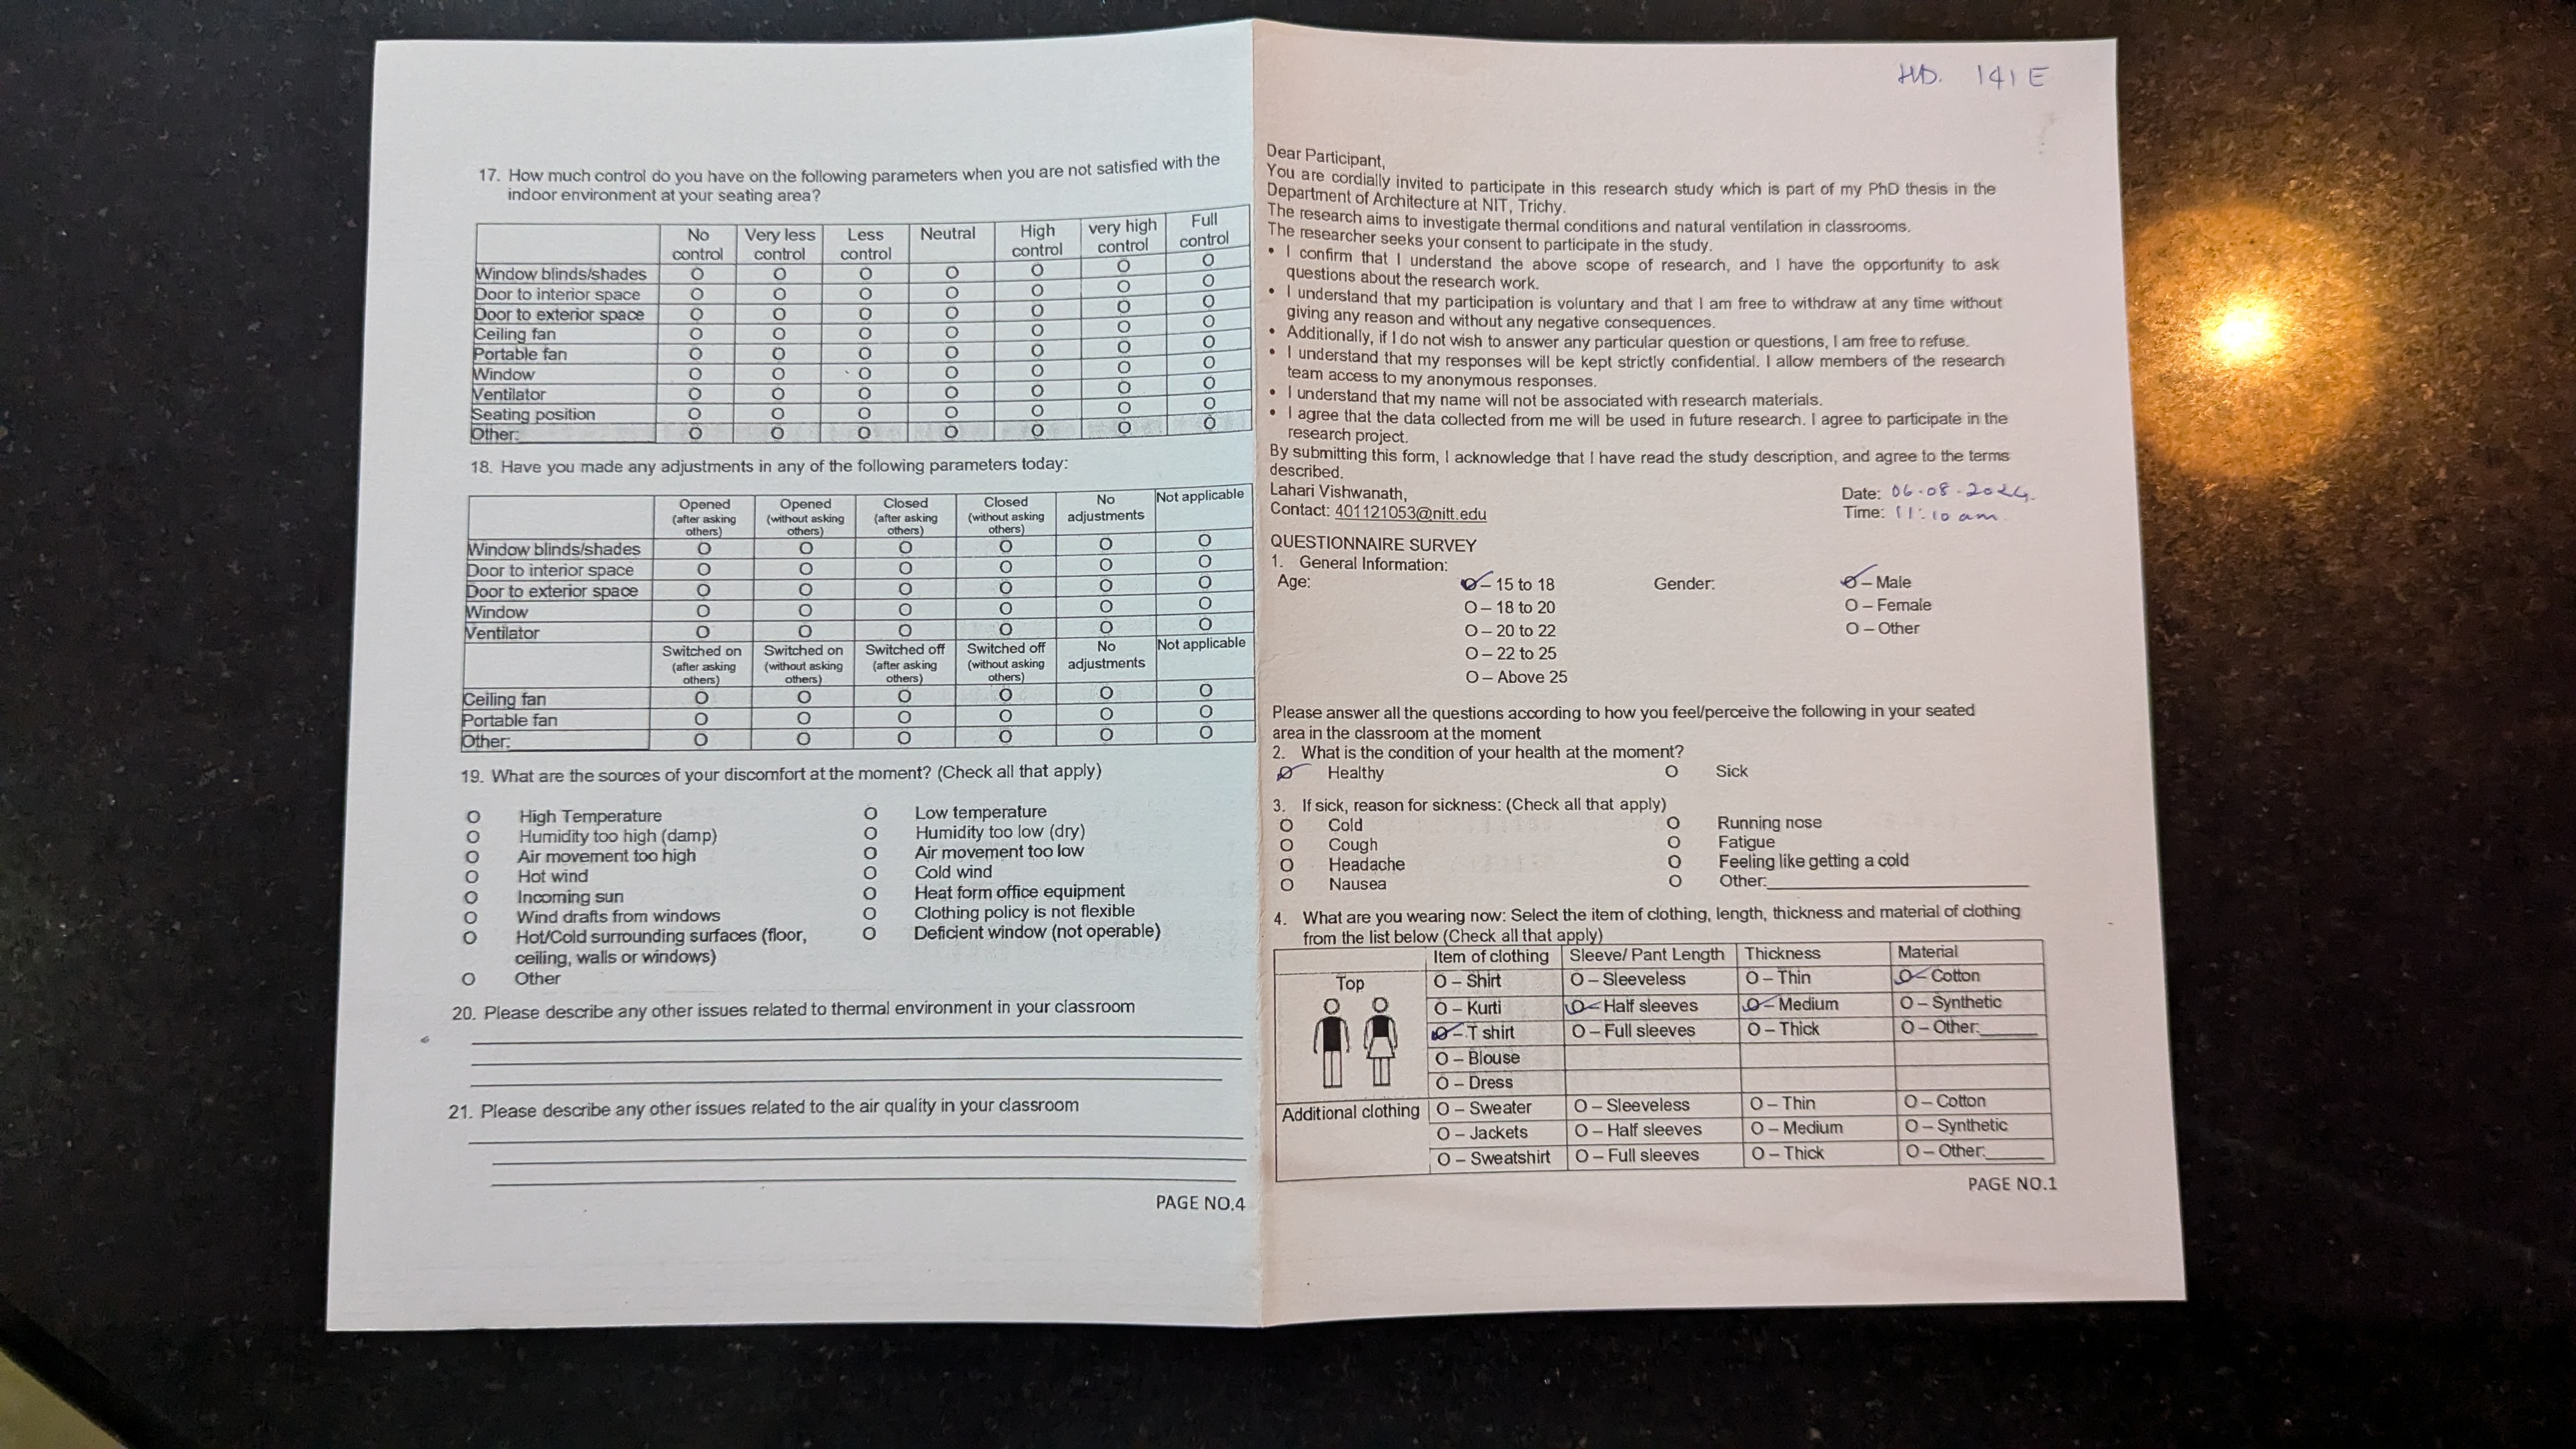 17. How much control do you have on the following parameters when you are not satisfied with the
indoor environment at your seating area?
No control Very less control Less control Neutral High control very high control Full control
Window blinds/shades O O O O O O O
Door to interior space O O O O O O O
Door to exterior space O O O O O O O
Ceiling fan O O O O O O O
Portable fan O O O O O O O
Window O O O O O O O
Ventilator O O O O O O O
Seating position O O O O O O O
Other: O O O O O O O
18. Have you made any adjustments in any of the following parameters today:
Opened (after asking others) Opened (without asking others) Closed (after asking others) Closed (without asking others) No adjustments Not applicable
Window blinds/shades O O O O O O
Door to interior space O O O O O O
Door to exterior space O O O O O O
Window O O O O O O
Ventilator O O O O O O
Switched on (after asking others) Switched on (without asking others) Switched off (after asking others) Switched off (without asking others) No adjustments Not applicable
Ceiling fan O O O O O O
Portable fan O O O O O O
Other: O O O O O O
19. What are the sources of your discomfort at the moment? (Check all that apply)
O High Temperature O Low temperature
O Humidity too high (damp) O Humidity too low (dry)
O Air movement too high O Air movement too low
O Hot wind O Cold wind
O Incoming sun O Heat form office equipment
O Wind drafts from windows O Clothing policy is not flexible
O Hot/Cold surrounding surfaces (floor, O Deficient window (not operable)
ceiling, walls or windows)
O Other
20. Please describe any other issues related to thermal environment in your classroom
21. Please describe any other issues related to the air quality in your classroom
PAGE NO.4
141 E
Dear Participant,
You are cordially invited to participate in this research study which is part of my PhD thesis in the
Department of Architecture at NIT, Trichy.
The research aims to investigate thermal conditions and natural ventilation in classrooms.
The researcher seeks your consent to participate in the study.
• I confirm that I understand the above scope of research, and I have the opportunity to ask
questions about the research work.
• I understand that my participation is voluntary and that I am free to withdraw at any time without
giving any reason and without any negative consequences.
• Additionally, if I do not wish to answer any particular question or questions, I am free to refuse.
• I understand that my responses will be kept strictly confidential. I allow members of the research
team access to my anonymous responses.
• I understand that my name will not be associated with research materials.
• I agree that the data collected from me will be used in future research. I agree to participate in the
research project.
By submitting this form, I acknowledge that I have read the study description, and agree to the terms
described.
Lahari Vishwanath, Date: 06-08-2024
Contact: 401121053@nitt.edu Time: 11:10 am
QUESTIONNAIRE SURVEY
1. General Information:
Age: O – 15 to 18 Gender: O – Male
O – 18 to 20 O – Female
O – 20 to 22 O – Other
O – 22 to 25
O – Above 25
Please answer all the questions according to how you feel/perceive the following in your seated
area in the classroom at the moment
2. What is the condition of your health at the moment?
O Healthy O Sick
3. If sick, reason for sickness: (Check all that apply)
O Cold O Running nose
O Cough O Fatigue
O Headache O Feeling like getting a cold
O Nausea O Other:
4. What are you wearing now: Select the item of clothing, length, thickness and material of clothing
from the list below (Check all that apply)
Item of clothing Sleeve/ Pant Length Thickness Material
Top O – Shirt O – Sleeveless O – Thin O – Cotton
O – Kurti O – Half sleeves O – Medium O – Synthetic
O – T shirt O – Full sleeves O – Thick O – Other:
O – Blouse
O – Dress
Additional clothing O – Sweater O – Sleeveless O – Thin O – Cotton
O – Jackets O – Half sleeves O – Medium O – Synthetic
O – Sweatshirt O – Full sleeves O – Thick O – Other:
PAGE NO.1